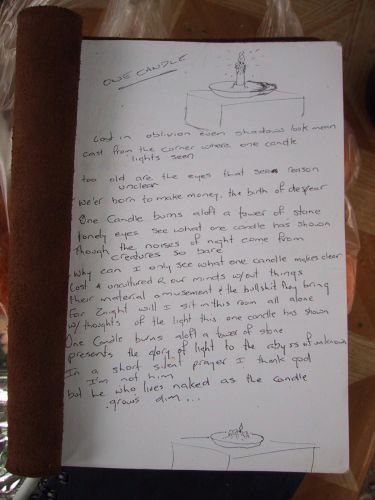 ONE CANDLE
Lost in oblivion even shadows look mean
cast from the corner where one candle
lights seen
too old are the eyes that reason
unclear
we'er born to make money, the birth of despear
One Candle burns aloft a tower of stone
lonely eyes see what one candle has shown
Though the noises of night come from
creatures so bare
Why can I only see what one candle makes clear
Lost & uncultured R our minds w/out things
their material amusement & the bullshit they bring
For 2night will I sit in this room all alone
w/ thoughts of the light this one candle has shown
One Candle burns aloft a tower of stone
presents the glory of light to the abyss of unknown
In a short silent prayer I thank god
I'm not him
but he who lives naked as the candle
grows dim...